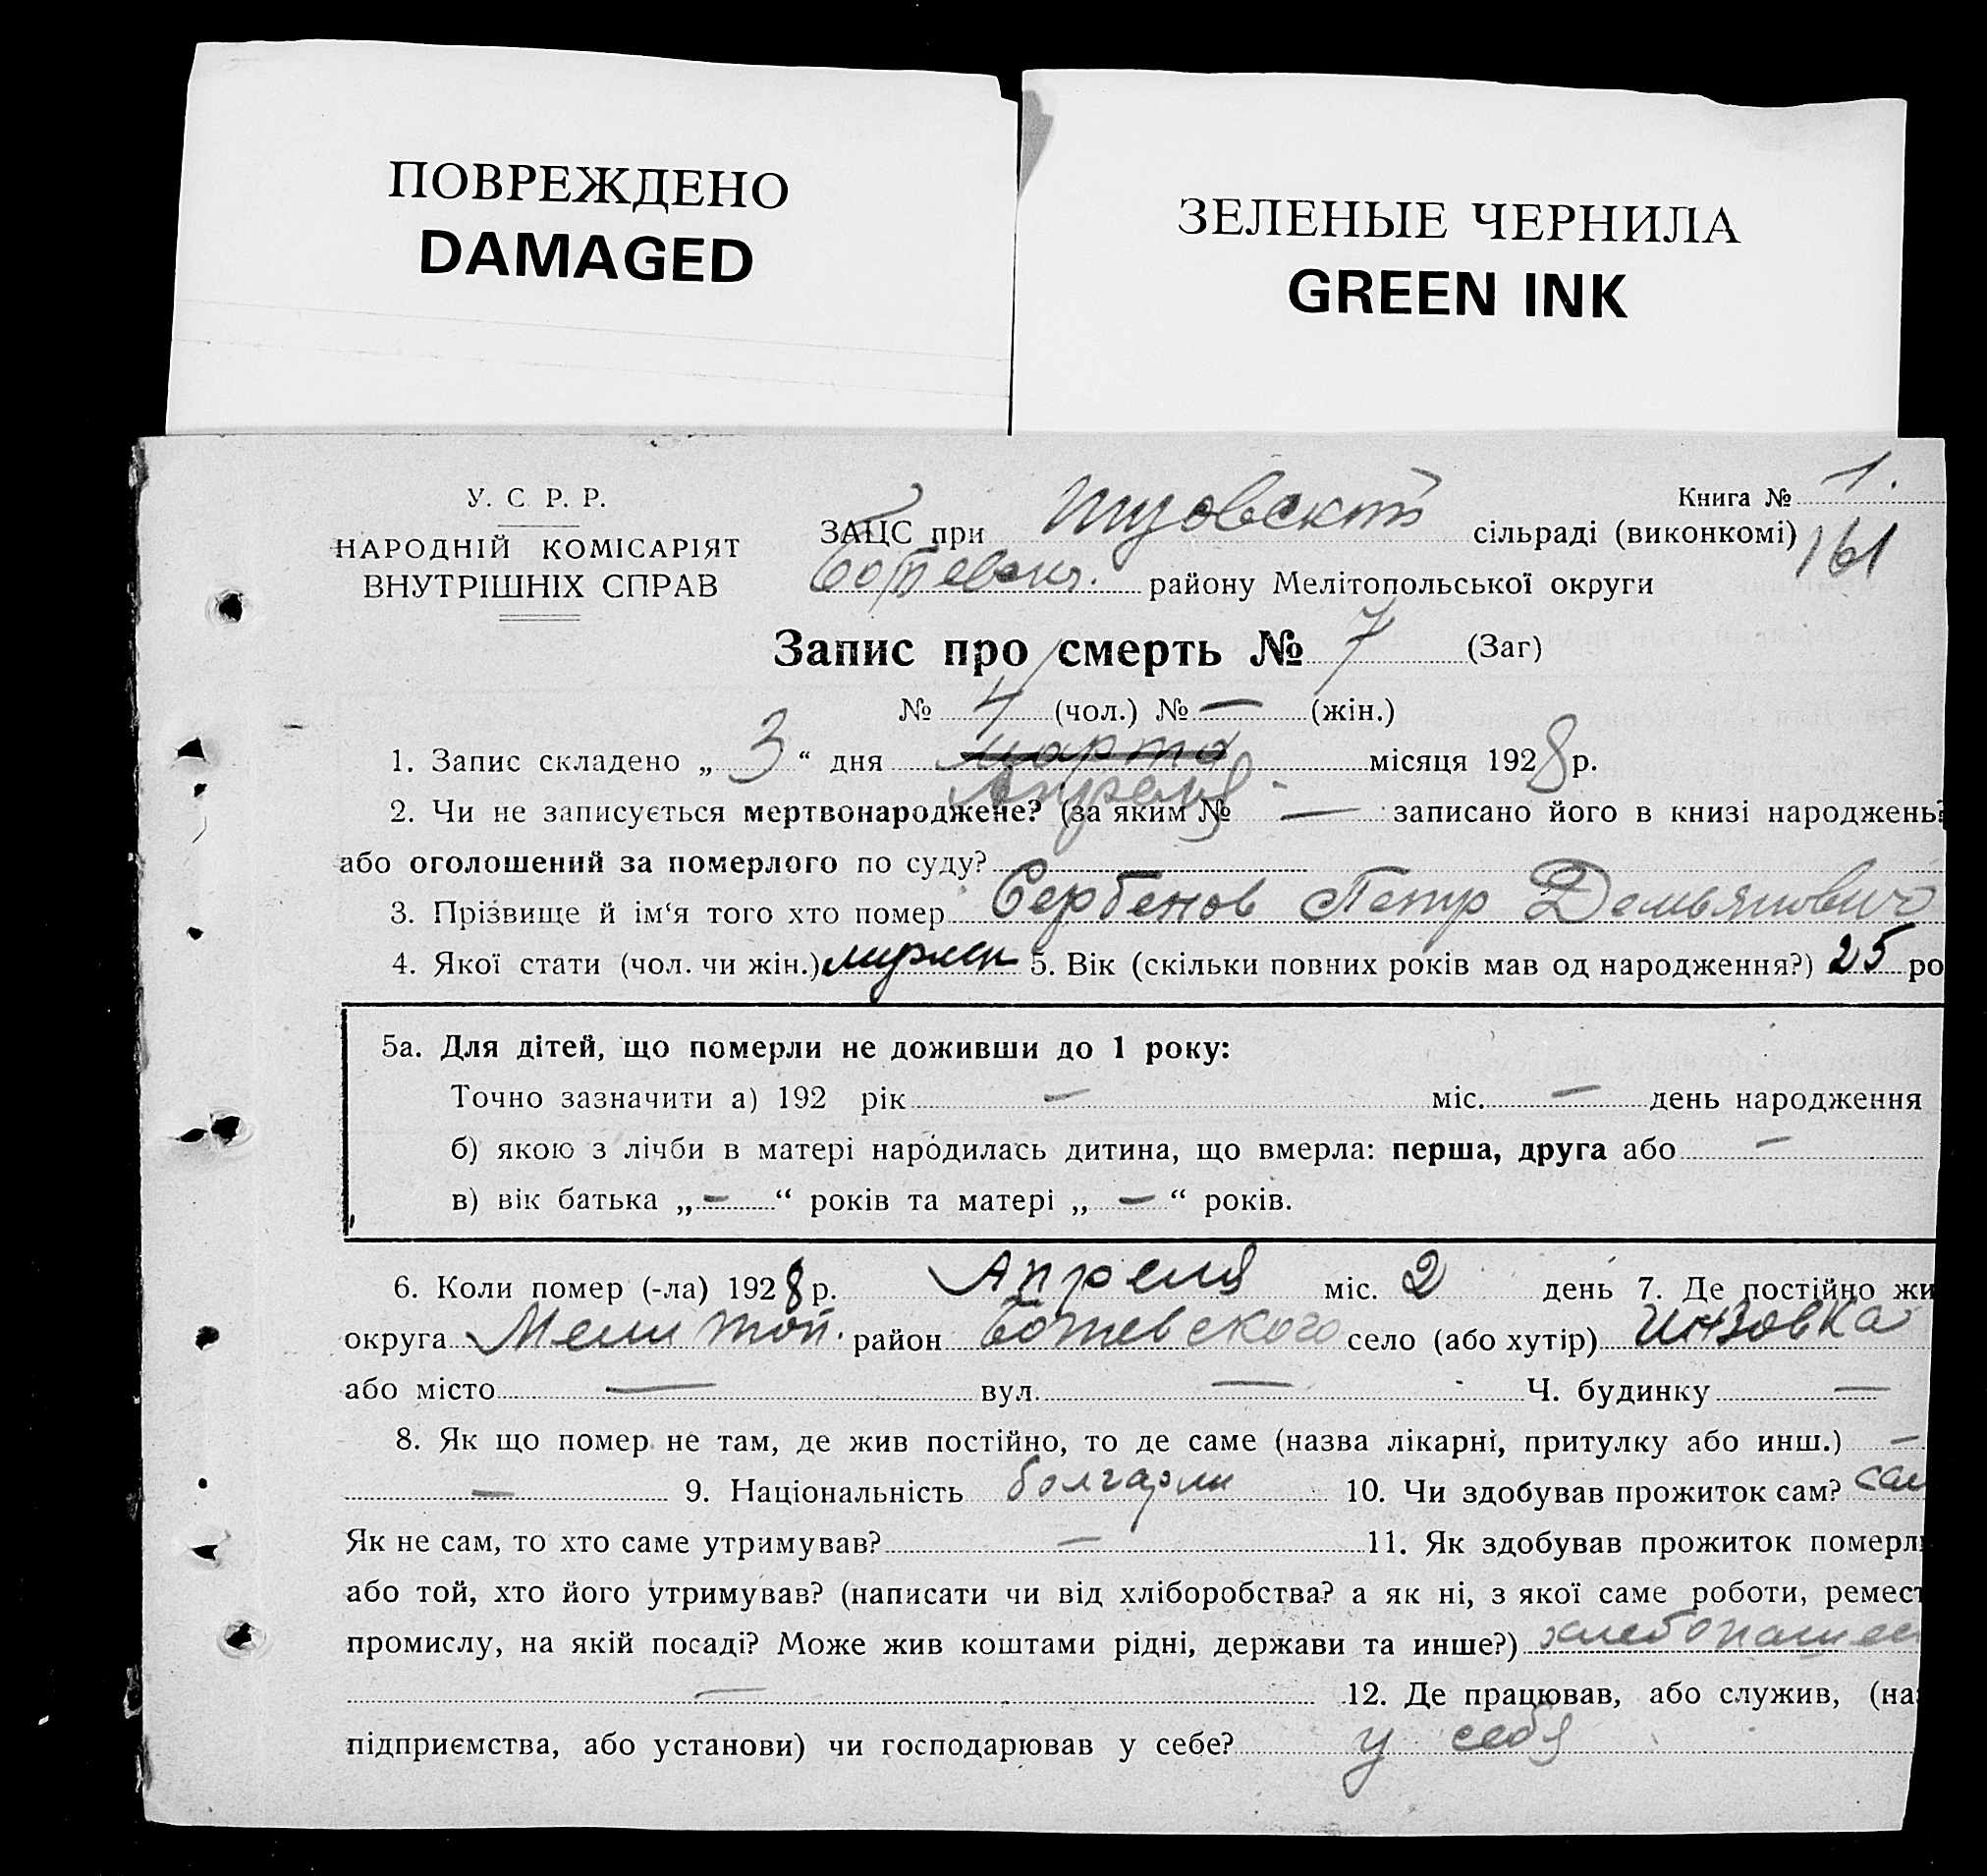 ПОВРЕЖДЕНО
DAMAGED
ЗЕЛЕНЫЕ ЧЕРНИЛА
GREEN INK
У. С. Р. Р.
НАРОДНІЙ КОМІСАРІЯТ
ВНУТРІШНІХ СПРАВ
Книга № 1.
161
ЗАЦС при сільраді (виконкомі)
району Мелітопольської округи
Запис про смерть № 7 (Заг)
№ 4 (чол.) № — (жін.)
1. Запис складено „ 3 “ дня марта місяця 1928 р.
Апреля
2. Чи не записується мертвонароджене? (за яким № — записано його в книзі народжень?
або оголошений за померлого по суду?
3. Прізвище й ім‘я того хто помер Сербенов Петр Демьянович
4. Якої стати (чол. чи жін.) мужск 5. Вік (скільки повних років мав од народження?) 25 ро
5а. Для дітей, що померли не доживши до 1 року:
Точно зазначити а) 192 рік — міс. — день народження
б) якою з лічби в матері народилась дитина, що вмерла: перша, друга або —
в) вік батька „ — “ років та матері „ — “ років.
6. Коли помер (-ла) 1928 р. Апреля міс. 2 день 7. Де постійно жи
округа Мелитоп. район Ботевского село (або хутір) Инзовка
або місто — вул. — Ч. будинку —
8. Як що помер не там, де жив постійно, то де саме (назва лікарні, притулку або инш.) —
— 9. Національність 10. Чи здобував прожиток сам? сам
Як не сам, то хто саме утримував? — 11. Як здобував прожиток померл
або той, хто його утримував? (написати чи від хліборобства? а як ні, з якої саме роботи, ремест
промислу, на якій посаді? Може жив коштами рідні, держави та инше?)
— 12. Де працював, або служив, (на
підприємства, або установи) чи господарював у себе? у себя